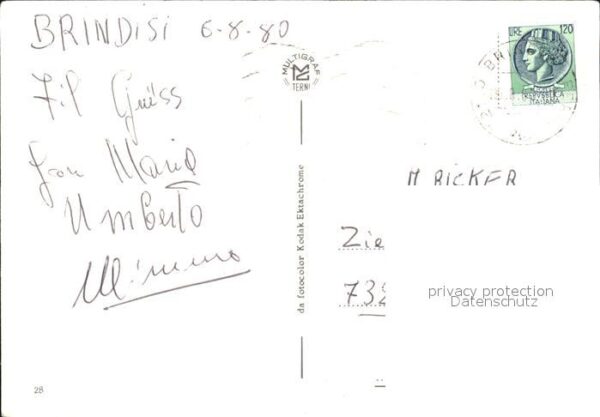 BRINDISI 6-8-80
Fil Grüss
fon Maria
Umberto
Mimmo
MULTIGRAF
TERNI
da fotocolor Kodak Ektachrome
LIRE 120
REPVBBLICA
ITALIANA
BRI
M RICKER
Zie
732
privacy protection
Datenschutz
28